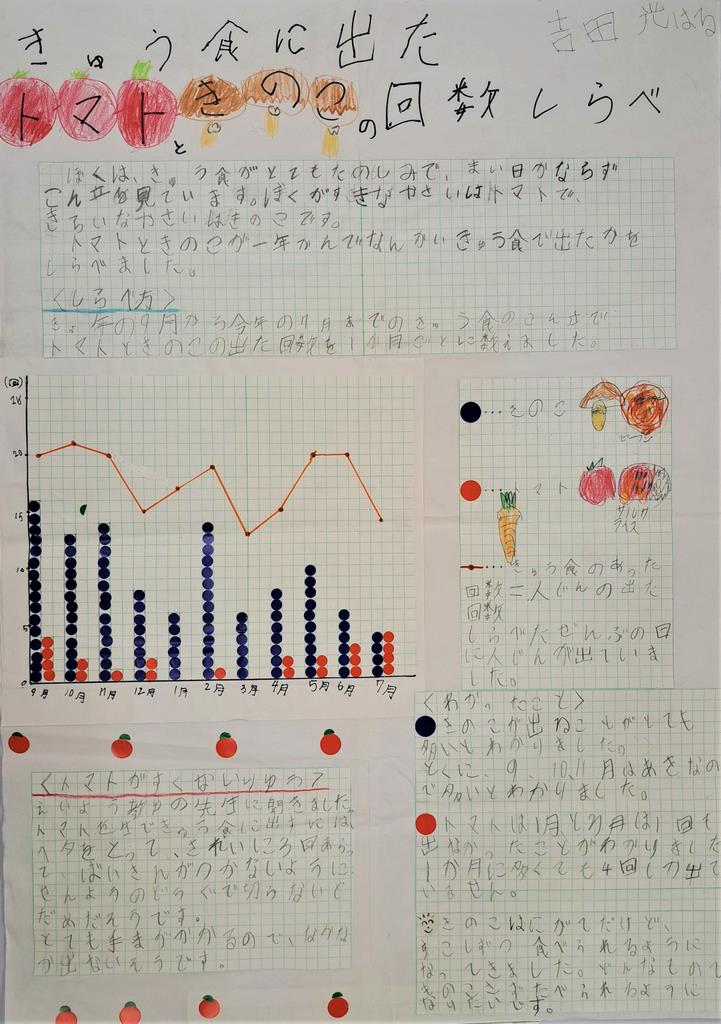 吉田 光はる
きゅう食に出た
トマトときのこの回数しらべ
ぼくは、きゅう食がとてもたのしみで、まい日かならず
こん立を見ています。ぼくがすきなやさいはトマトで、
きらいなやさいはきのこです。
トマトときのこが一年かんでなんかいきゅう食で出たかを
しらべました。
〈しらべ方〉
きょ年の9月から今年の7月までのきゅう食のこん立で
トマトときのこの出た回数を1か月ごとに数えました。
(回)
20
15
10
5
0
9月 10月 11月 12月 1月 2月 3月 4月 5月 6月 7月
…きのこ
ビーフン
…トマト
ライス
…きゅう食のあった
回数=人じんの出た
回数
しらべたぜんぶの日
に人じんが出ていま
した。
〈わかったこと〉
きのこが出ることがとても
多いとわかりました。
とくに、9、10、11月はあきなの
で多いとわかりました。
トマトは1月と3月は1回も
出なかったことがわかりました
1か月に多くても4回しか出て
いません。
きのこはにがてだけど、
すこしずつ食べられるように
なってきました。どんなもので
きのこもたべられるように
なりたいです。
〈トマトがすくないりゆう〉
えいよう教ゆの先生に聞きました。
トマトを生できゅう食に出すには
ヘタをとって、きれいに3回あらっ
て、ばいきんがつかないように
せんようのどうぐで切らないと
だめだそうです。
とても手まがかかるので、なかな
か出ないそうです。